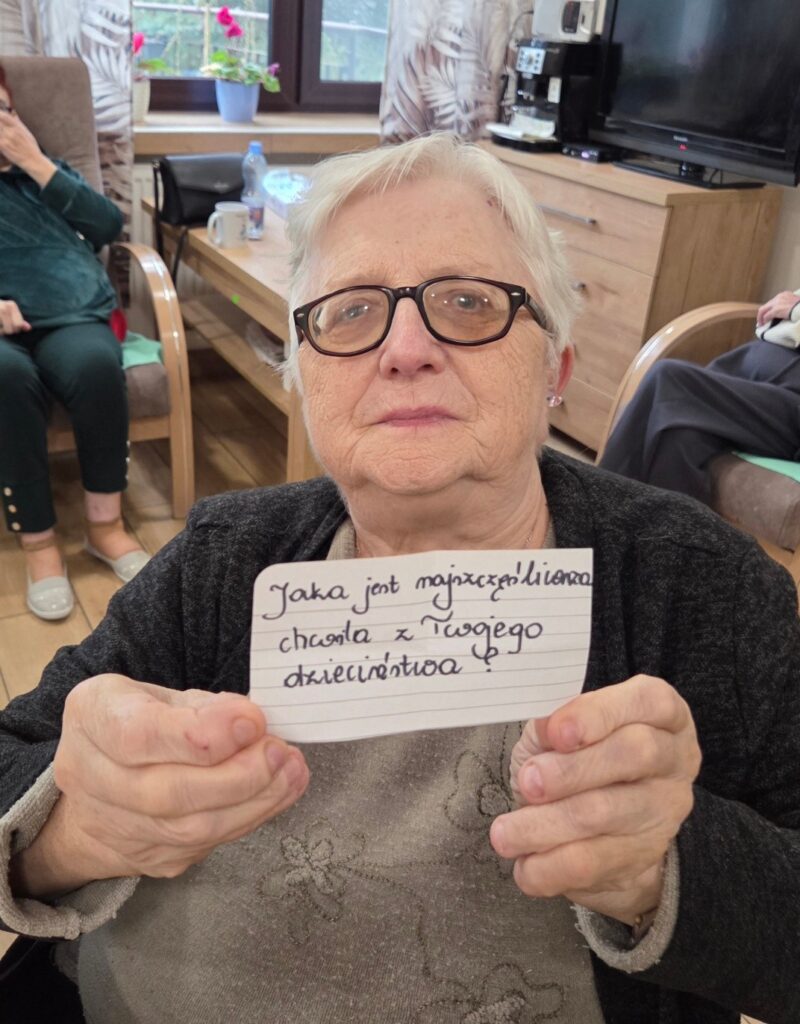 Jaka jest najszczęśliwsza
chwila z Twojego
dzieciństwa ?